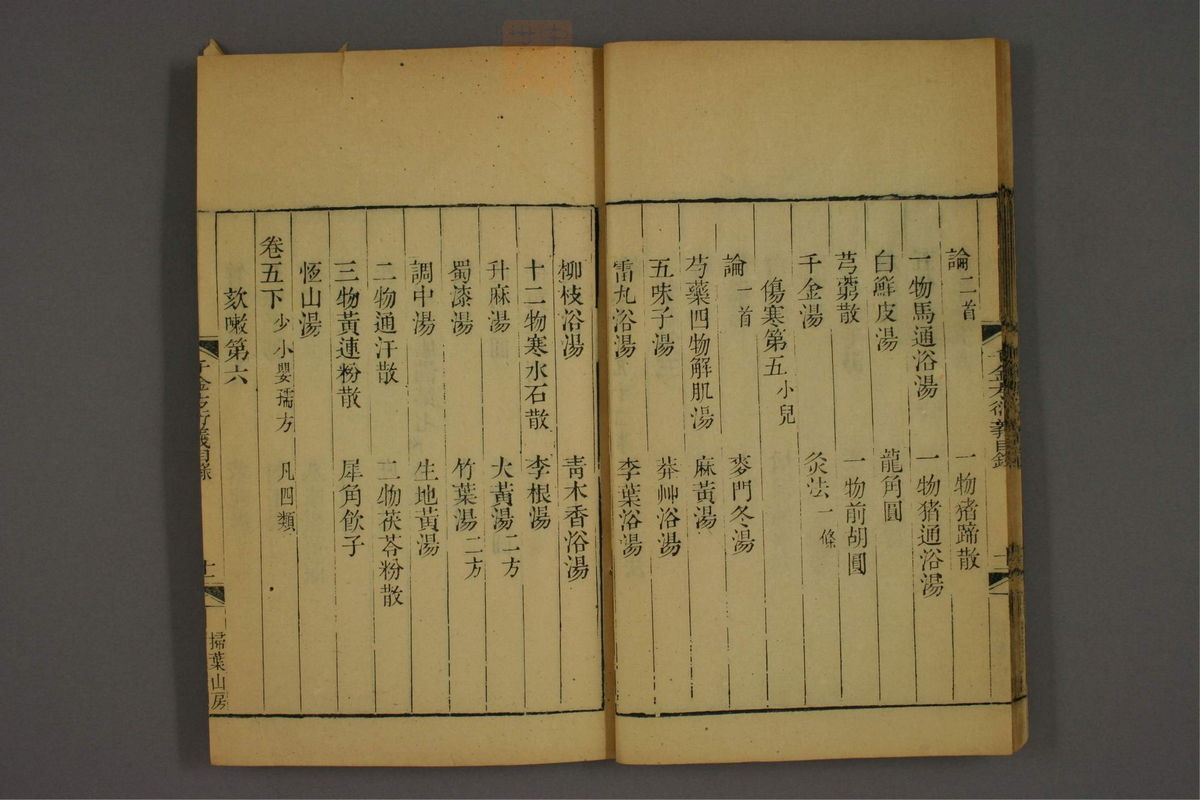 論二首　一物猪蹄散
一物馬通浴湯　一物猪通浴湯
白鮮皮湯　龍角圓
芎藭散　一物前胡圓
千金湯　灸法一條
傷寒第五小兒
論一首　麥門冬湯
芍藥四物解肌湯　麻黃湯
五味子湯　莽艸浴湯
雷丸浴湯　李葉浴湯
柳枝浴湯　靑木香浴湯
十二物寒水石散　李根湯
升麻湯　大黃湯二方
蜀漆湯　竹葉湯二方
調中湯　生地黃湯
二物通汗散　二物茯苓粉散
三物黃連粉散　犀角飮子
恆山湯
卷五下少小嬰孺方　凡四類
欬嗽第六
千金方衍義目錄　十一
掃葉山房